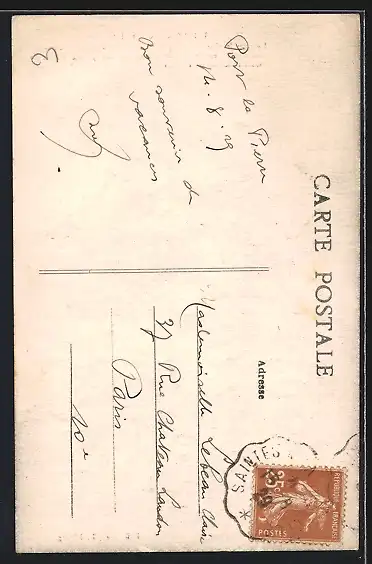 CARTE POSTALE
Port la Pierre
14.8.29
Bon souvenir de
vacances
Adresse
Mademoiselle Lebeau Claire
37 Rue Chateau Landon
Paris
10e
SAINTES
REPUBLIQUE FRANÇAISE
25c
POSTES